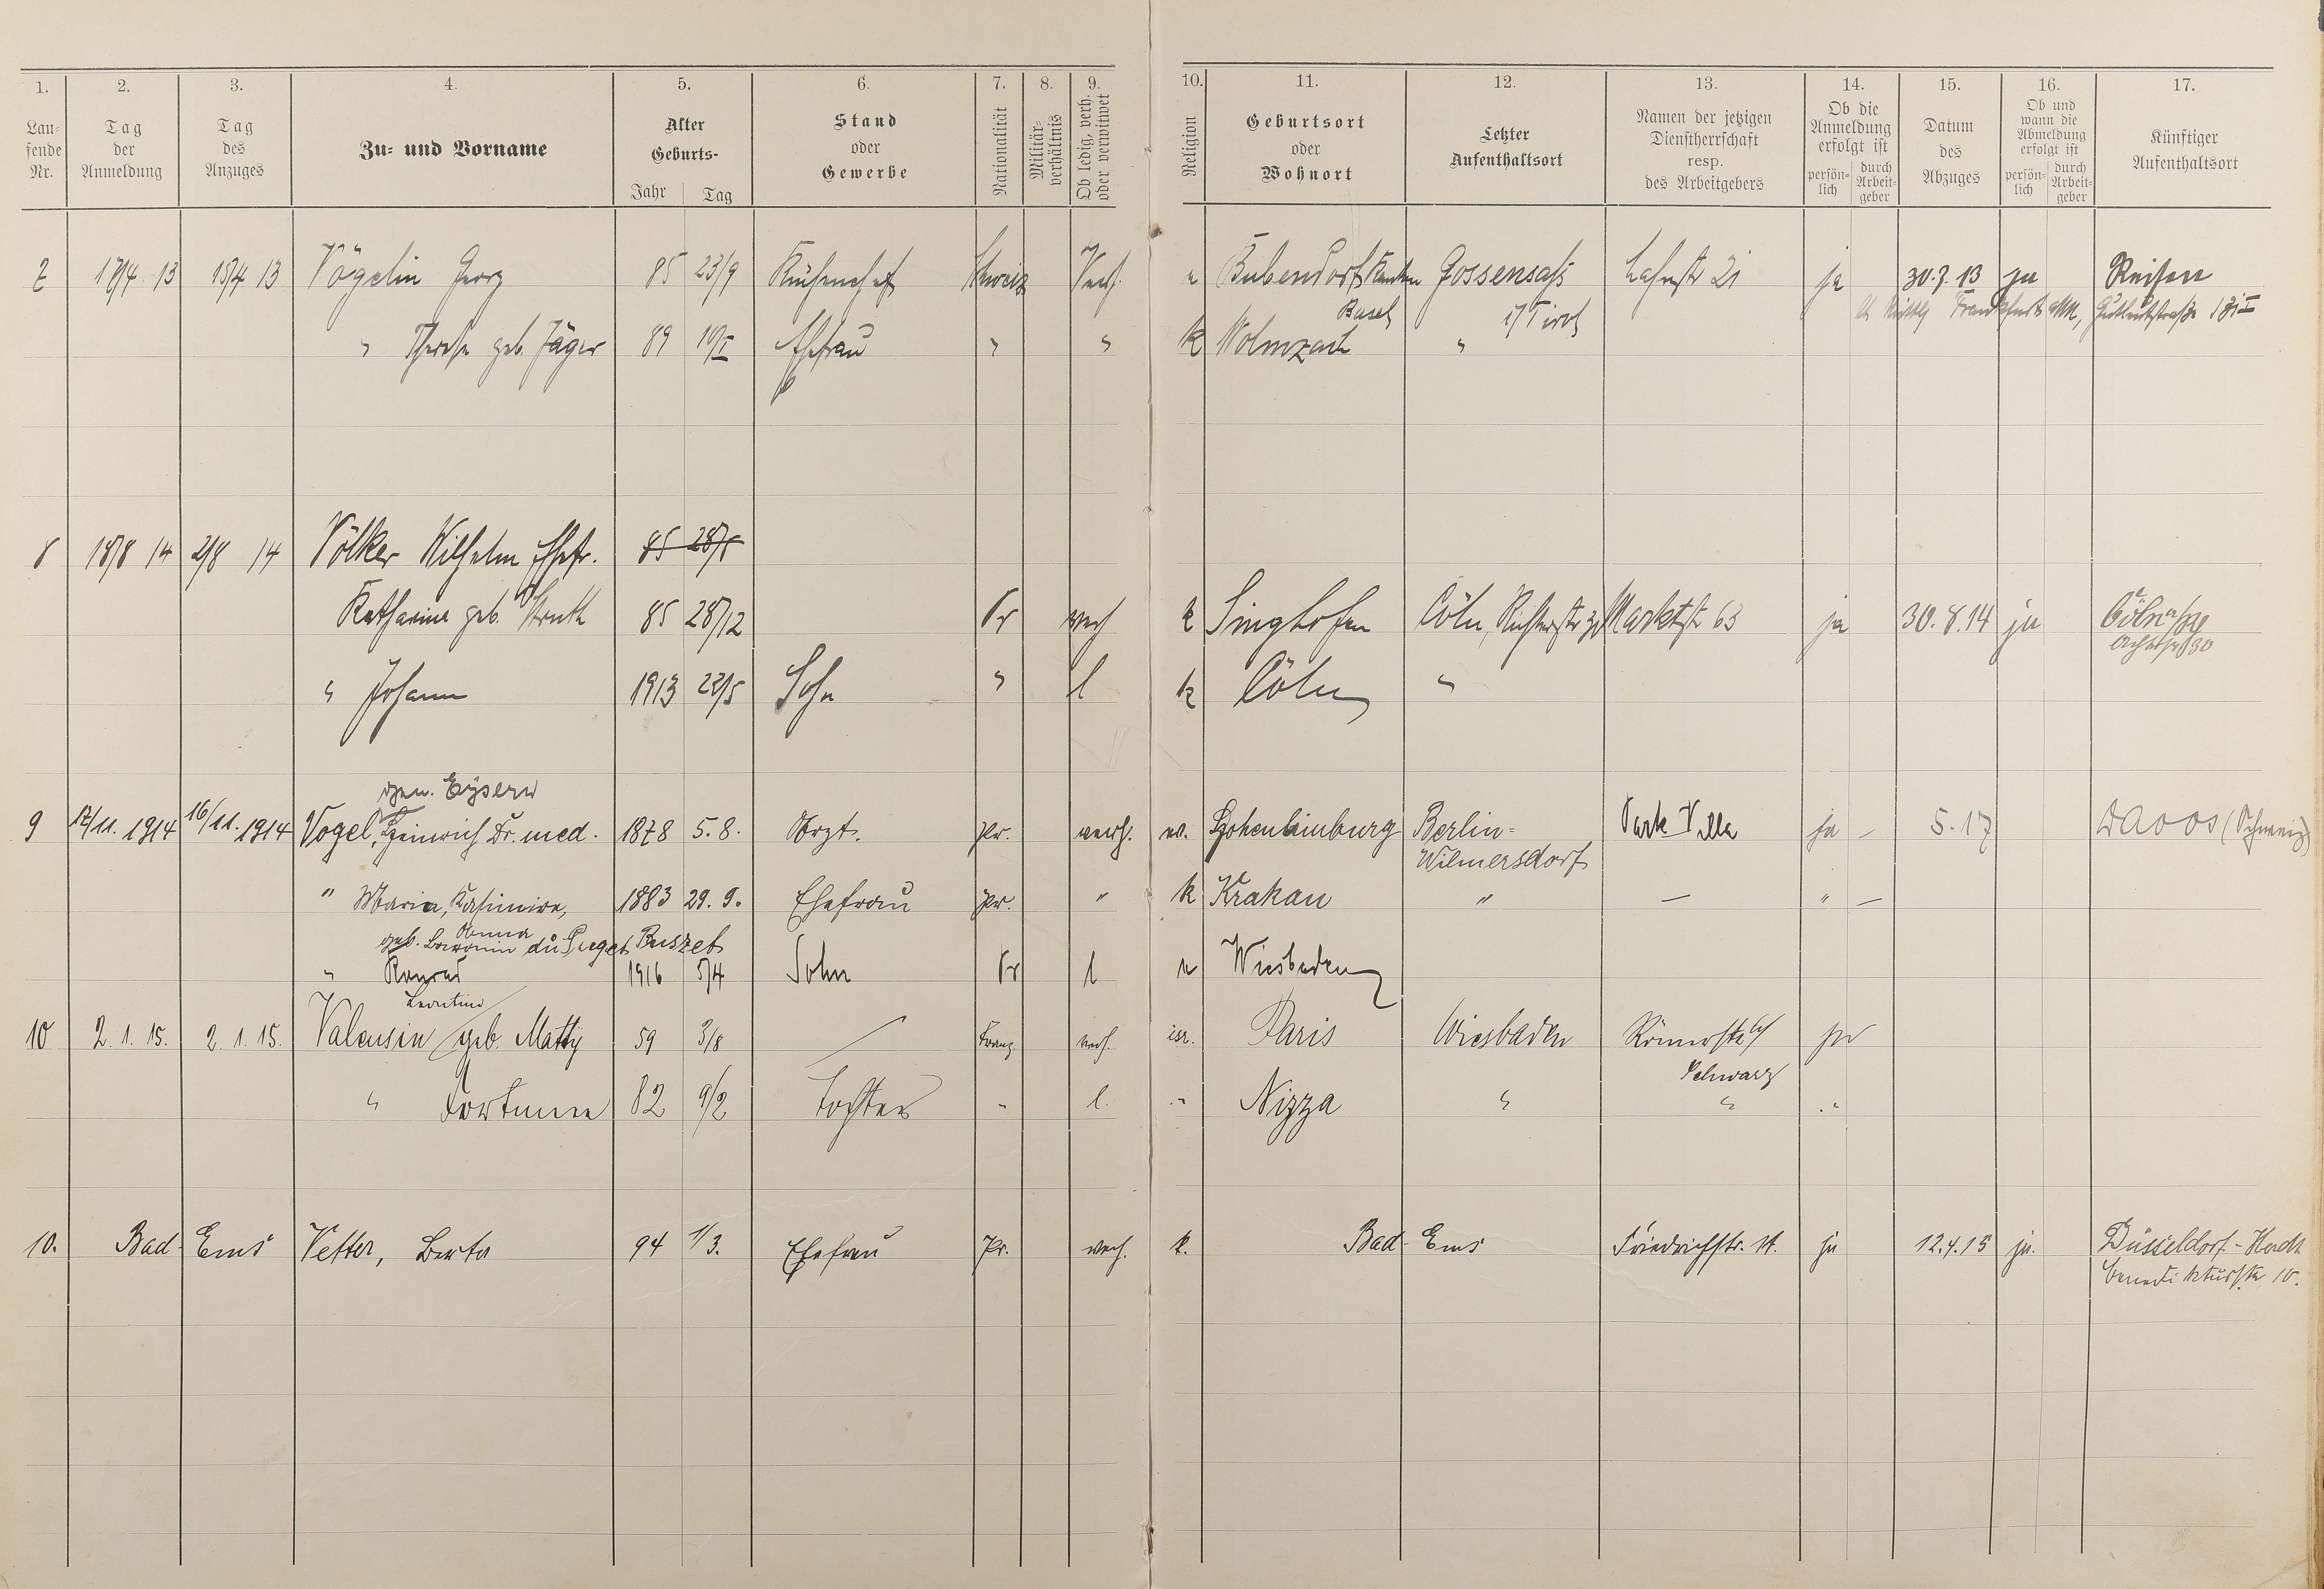 1. 2. 3. 4. 5. 6. 7. 8. 9. 10. 11. 12. 13. 14. 15. 16. 17.
Lau-
fende
Nr.
Tag
der
Anmeldung
Tag
des
Anzuges
Zu- und Vorname
Alter
Geburts-
Jahr Tag
Stand
oder
Gewerbe
Nationalität
Militär-
verhältnis
Ob ledig, verh.
oder verwitwet
Religion
Geburtsort
oder
Wohnort
Letzter
Aufenthaltsort
Namen der jetzigen
Dienstherrschaft
resp.
des Arbeitgebers
Ob die
Anmeldung
erfolgt ist
persön-
lich
durch
Arbeit-
geber
Datum
des
Abzuges
Ob und
wann die
Abmeldung
erfolgt ist
persön-
lich
durch
Arbeit-
geber
Künftiger
Aufenthaltsort
7 13 15/4 13 Vögelin Georg 85 23/9 Küchenchef Schweiz Verh. Bubendorf Kanton Gossensaß Lahnstr 21 ja 30.9.13 ja Reisen
Basel i/Tirol Frankfurt a/M,
" Therese geb. Jäger 89 Ehefrau " " k Wolnzach "
8 18/8 14 2/8 14 Völker Wilhelm Ehefr. 85
Katharina geb. Struth 85 28/12 Pr verh k Singhofen Cöln, Marktstr 63 ja 30.8.14 ja Cöln
" Johann 1913 22/5 Sohn " l k Cöln "
gen. Eysern
9 17/11. 1914 16/11. 1914 Vogel, Heinrich Dr. med. 1878 5.8. Arzt. Pr. verh. ev. Hohenlimburg Berlin- Park Villa ja – 5.17 Davos (Schweiz)
Wilmersdorf
" Maria, Kasimira, 1883 29.9. Ehefrau Pr. " k Krakau " – " –
Anna
geb. Baronin du Puget Puszet
" Konrad 1916 5/4 Sohn Pr l Wiesbaden
Leontine
10 2.1.15. 2.1.15. Valensin geb. Matty 59 3/8 Franz. verh. isr. Paris Wiesbaden Römerstr ja
Schwarz
" Fortunee 82 9/2 Tochter " l. " Nizza " " "
10. Bad Ems Vetter, Berta 94 1/3. Ehefrau Pr. verh. k. Bad Ems Friedrichstr. ja 12.4.15 ja. Düsseldorf-Hardt